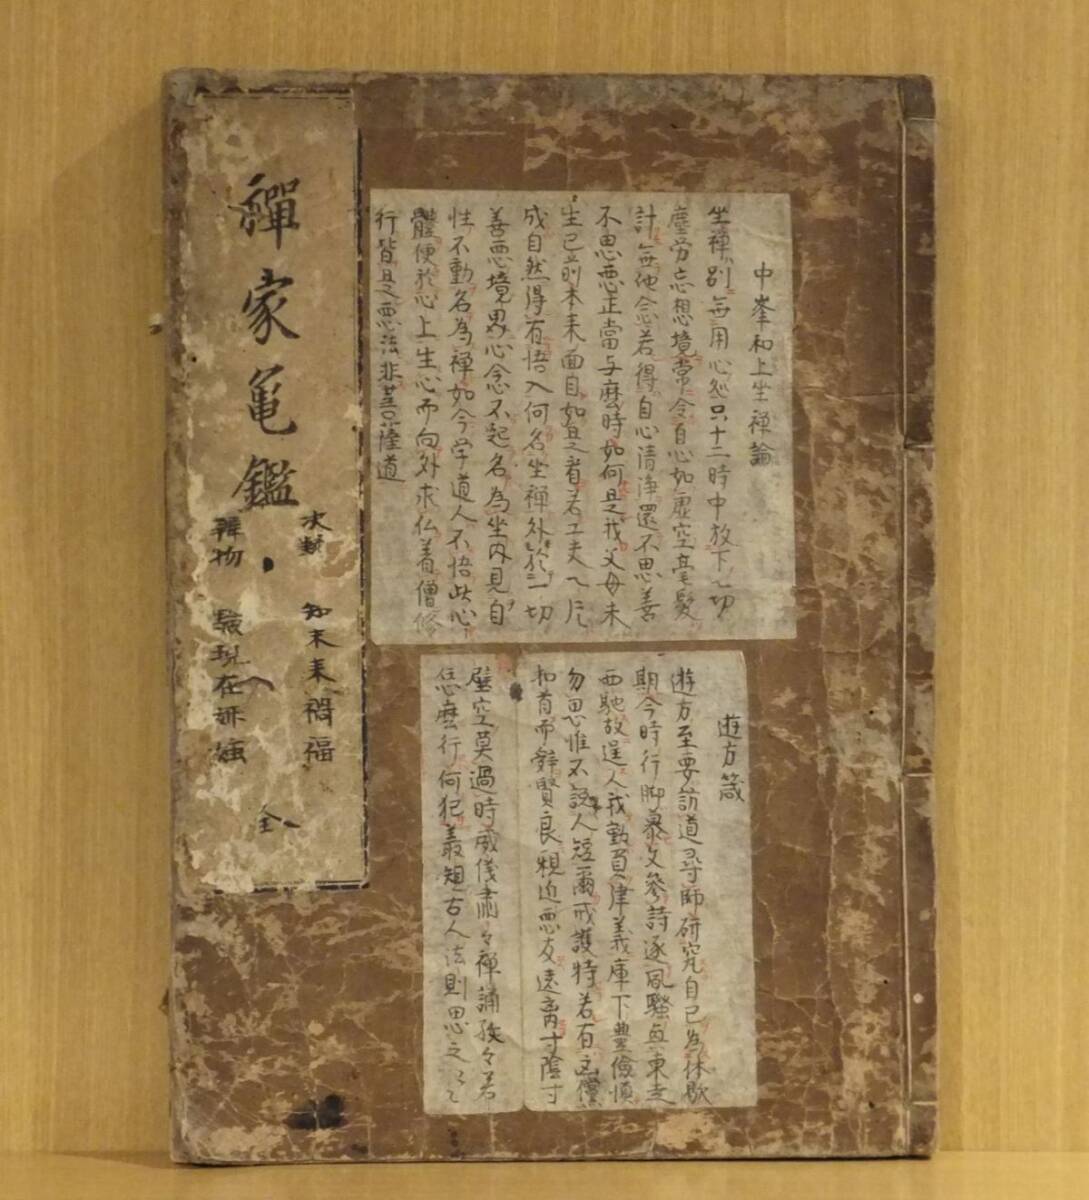 中峯和上坐禅論
坐禅別無用心処只十二時中放下一切
塵労忘想境常令自心如虚空毫髪
計無他念若得自心清浄還不思善
不思悪正當与麼時如何是我父母未
生已前本来面目如是看若工夫一片
成自然得有悟入何名坐禅外於一切
善悪境界心念不起名為坐内見自
性不動名為禅如今学道人不悟此心
體便於心上生心而向外求仏着僧修
行皆是悪法非菩薩道
遊方箴
遊方至要訪道尋師研究自己為休歇
期今時行脚慕文參詩逐風騒興東走
西馳放逞人我勤負律義庫下豊儉慎
勿思惟不説人短爾戒護持若有
和首而辞賢良親近悪友遠离寸陰寸
璧空莫過時威儀粛々禅誦孜々若
恁麼行何犯叢規古人法則思之々々
禪家亀鑑
次類 知未来禍福
辨物 驗現在妍媸
全